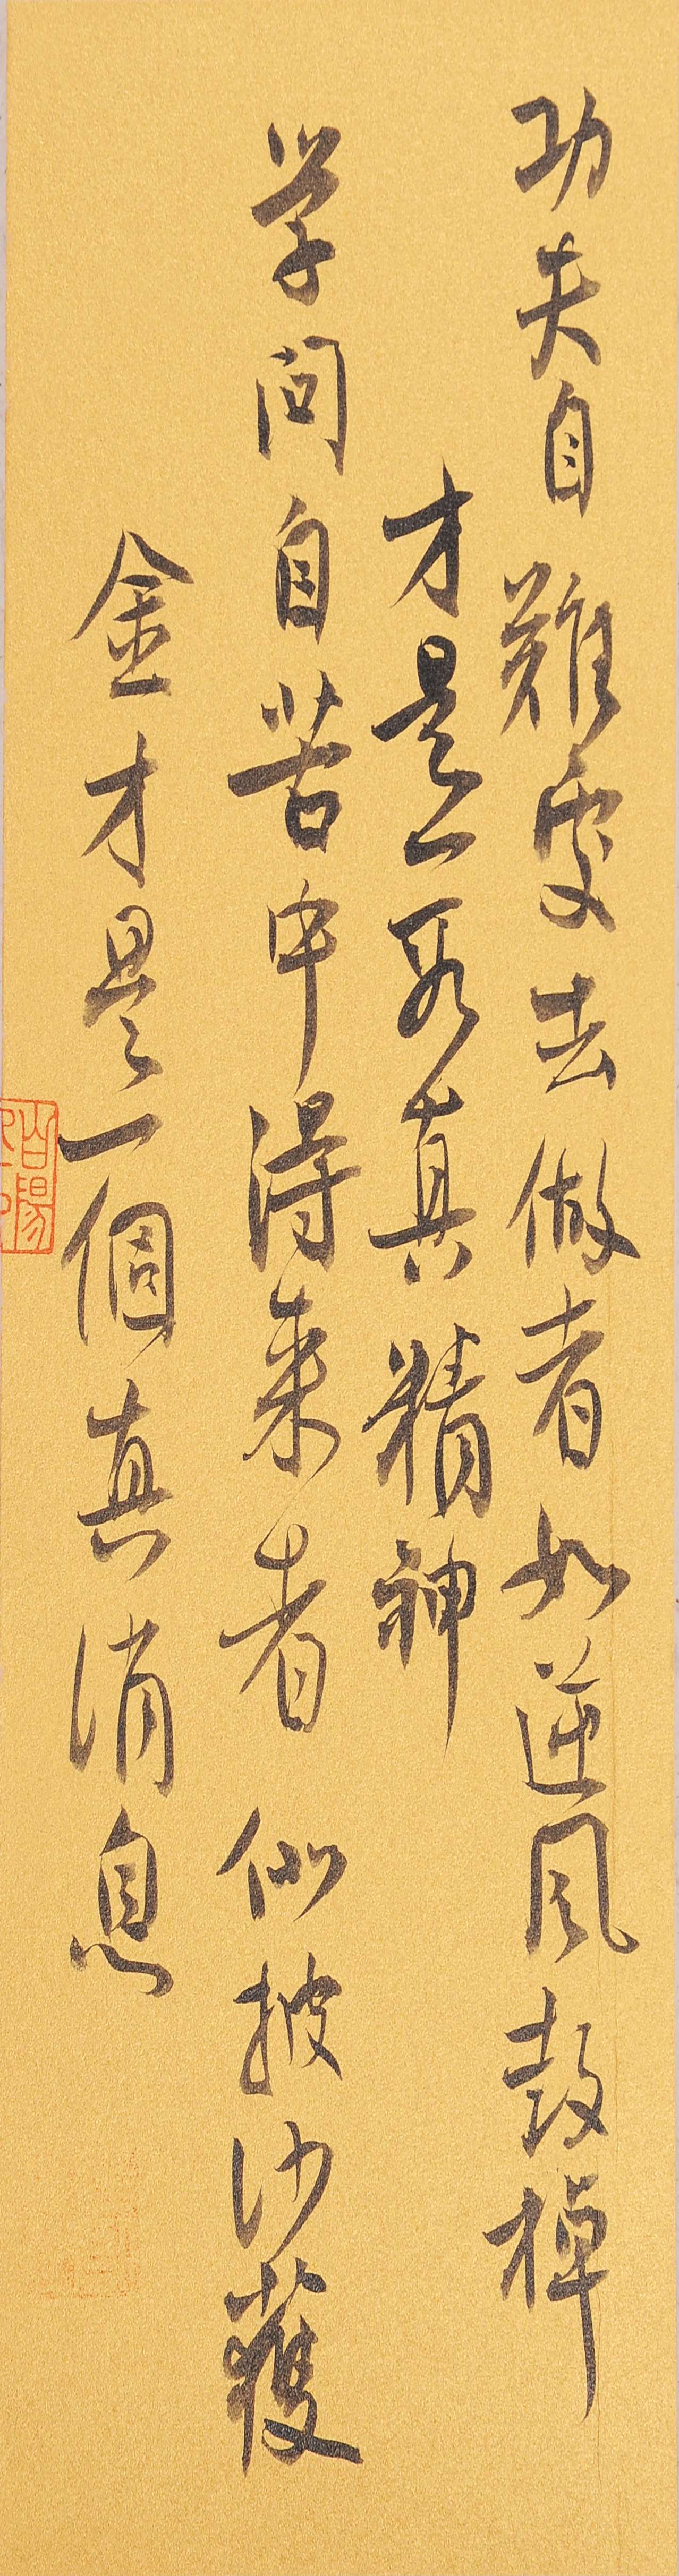 功夫自難處去做者如逆風鼓棹
才是一段真精神
学问自苦中得来者似披沙獲
金才是一個真消息